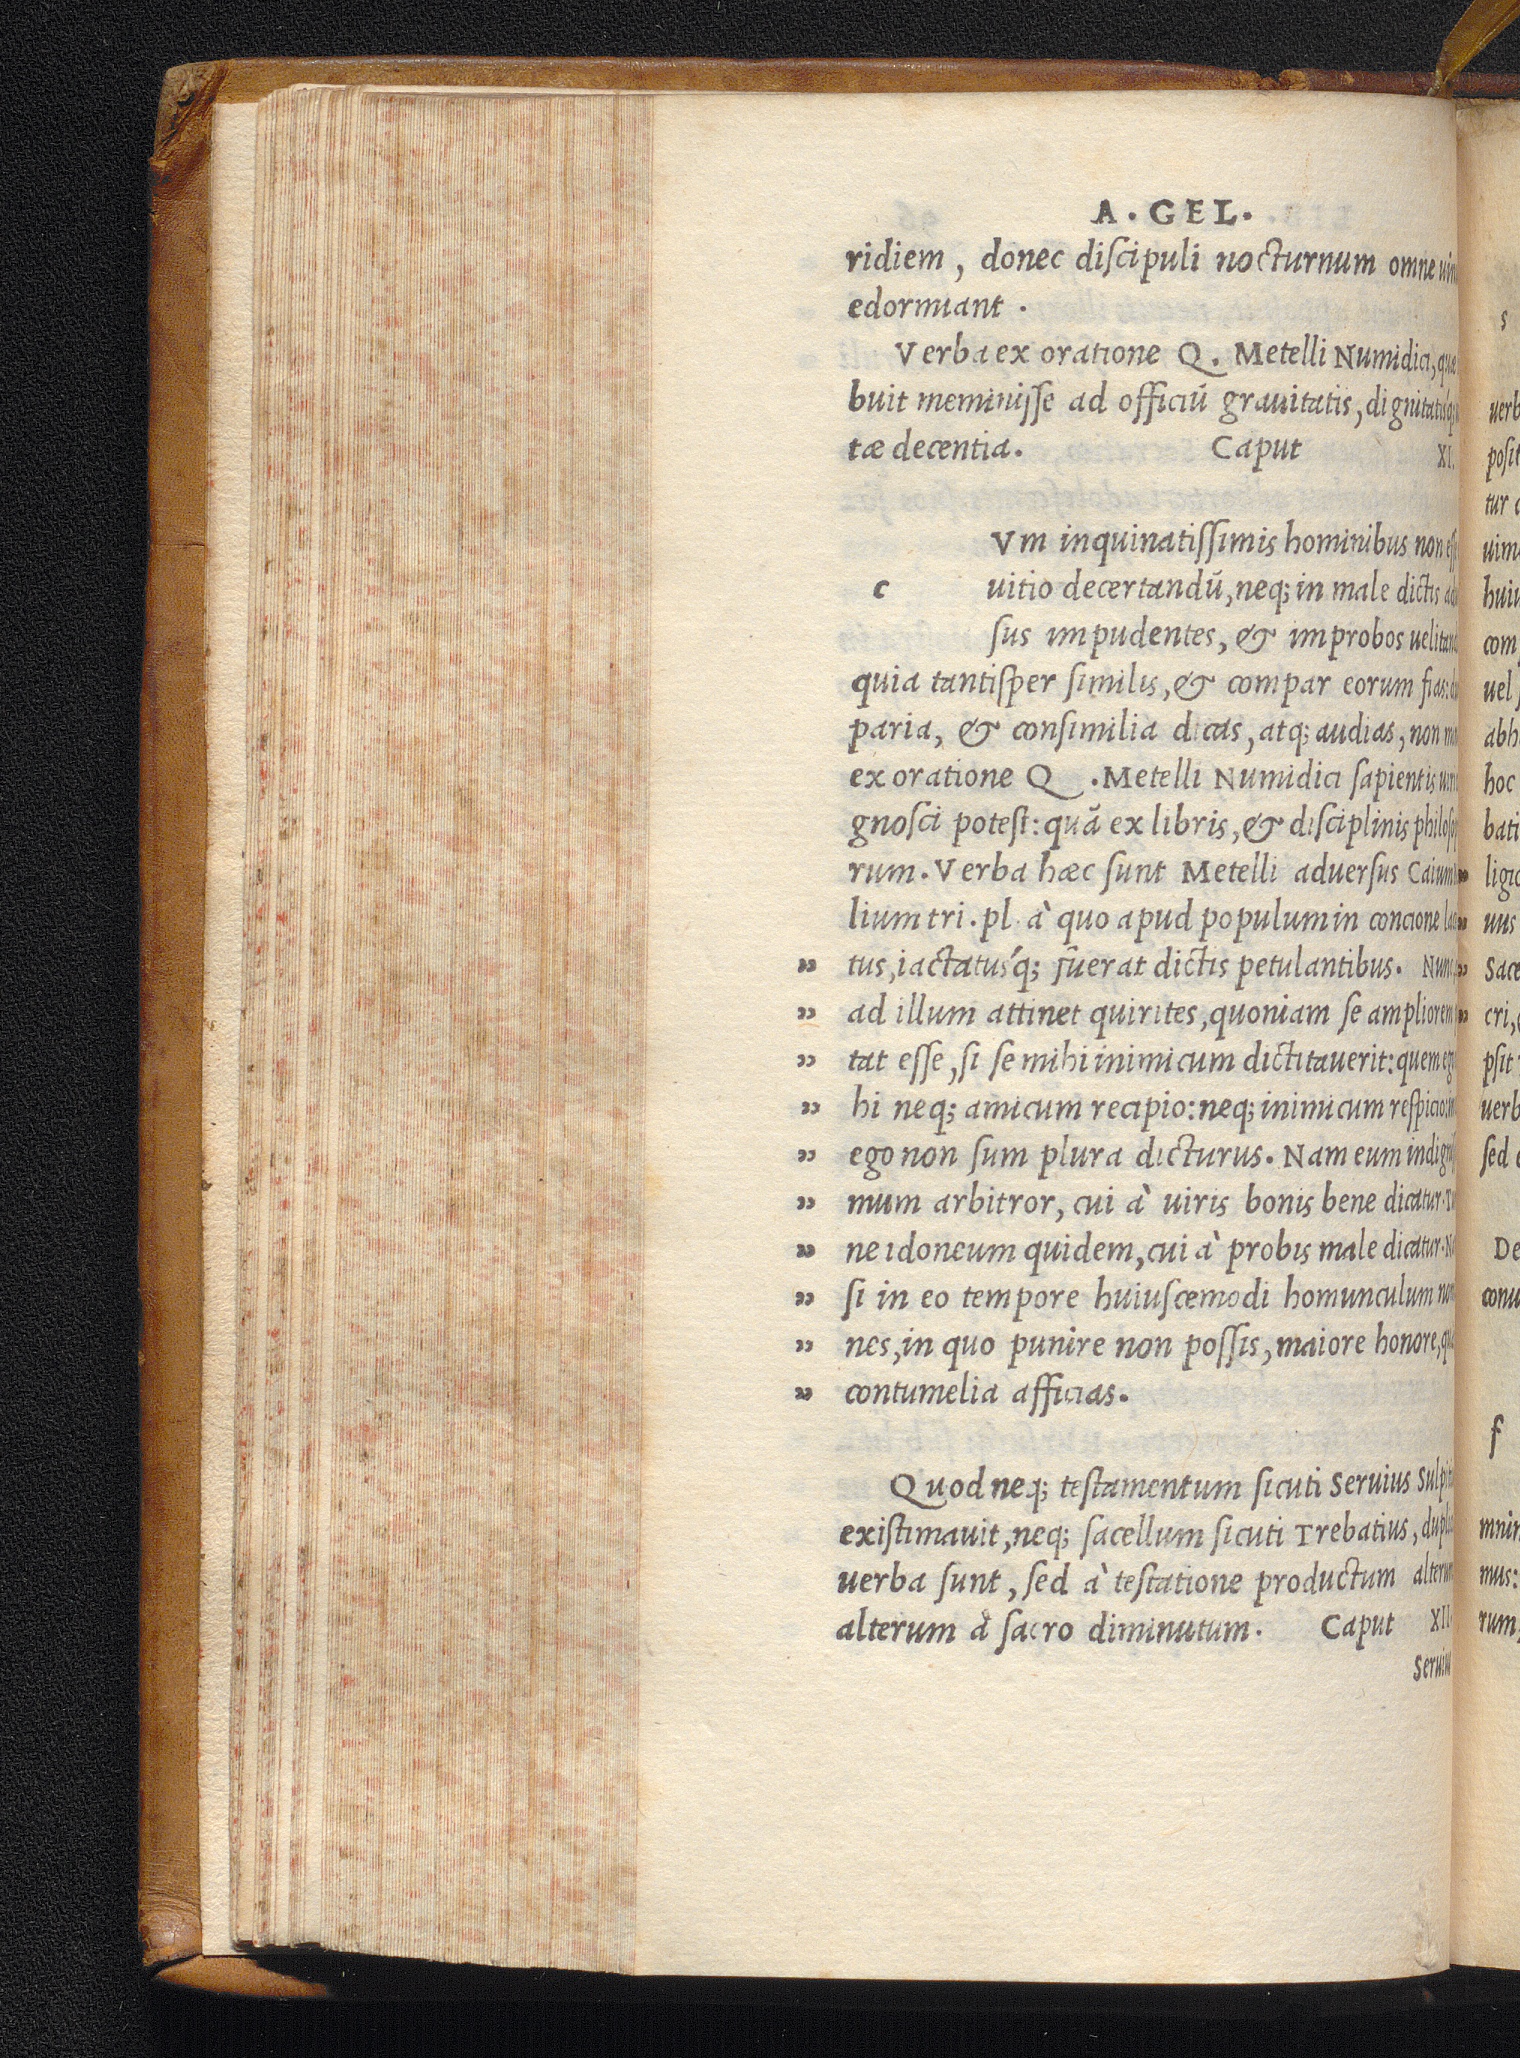 A. GEL.
ridiem, donec discipuli nocturnum omne uin
edormiant.
Verba ex oratione Q. Metelli Numidici, quæ
buit meminisse ad officiū grauitatis, dignitatisq;
tæ decentia. Caput XI.
Vm inquinatissimis hominibus non esse
c uitio decertandū, neq; in male dictis ad
sus impudentes, & improbos uelitand
quia tantisper similis, & compar eorum fias:
paria, & consimilia dicas, atq; audias, non
ex oratione Q. Metelli Numidici sapientis
gnosci potest: quā ex libris, & disciplinis philosop
rum. Verba hæc sunt Metelli aduersus Caium
lium tri. pl. à quo apud populum in concione
„ tus, iactatus'q; fuerat dictis petulantibus. Nunc
„ ad illum attinet quirites, quoniam se ampliorem
„ tat esse, si se mihi inimicum dictitauerit: quem ego
„ hi neq; amicum recipio: neq; inimicum respicio:
„ ego non sum plura dicturus. Nam eum indignis
„ mum arbitror, cui à uiris bonis bene dicatur.
„ ne idoneum quidem, cui à probis male dicatur.
„ si in eo tempore huiuscemodi homunculum
„ nes, in quo punire non possis, maiore honore,
„ contumelia afficias.
Quod neq; testamentum sicuti Seruius Sulpi
existimauit, neq; sacellum sicuti Trebatius,
uerba sunt, sed à testatione productum alterum
alterum à sacro diminutum. Caput XII
Seruiu
s
uerb
posit
tur
uim
huiu
com
uel
abh
hoc
bati
ligio
uus
Sace
cri,
psit
uerb
sed
De
conu
f
mnin
mus:
rum,